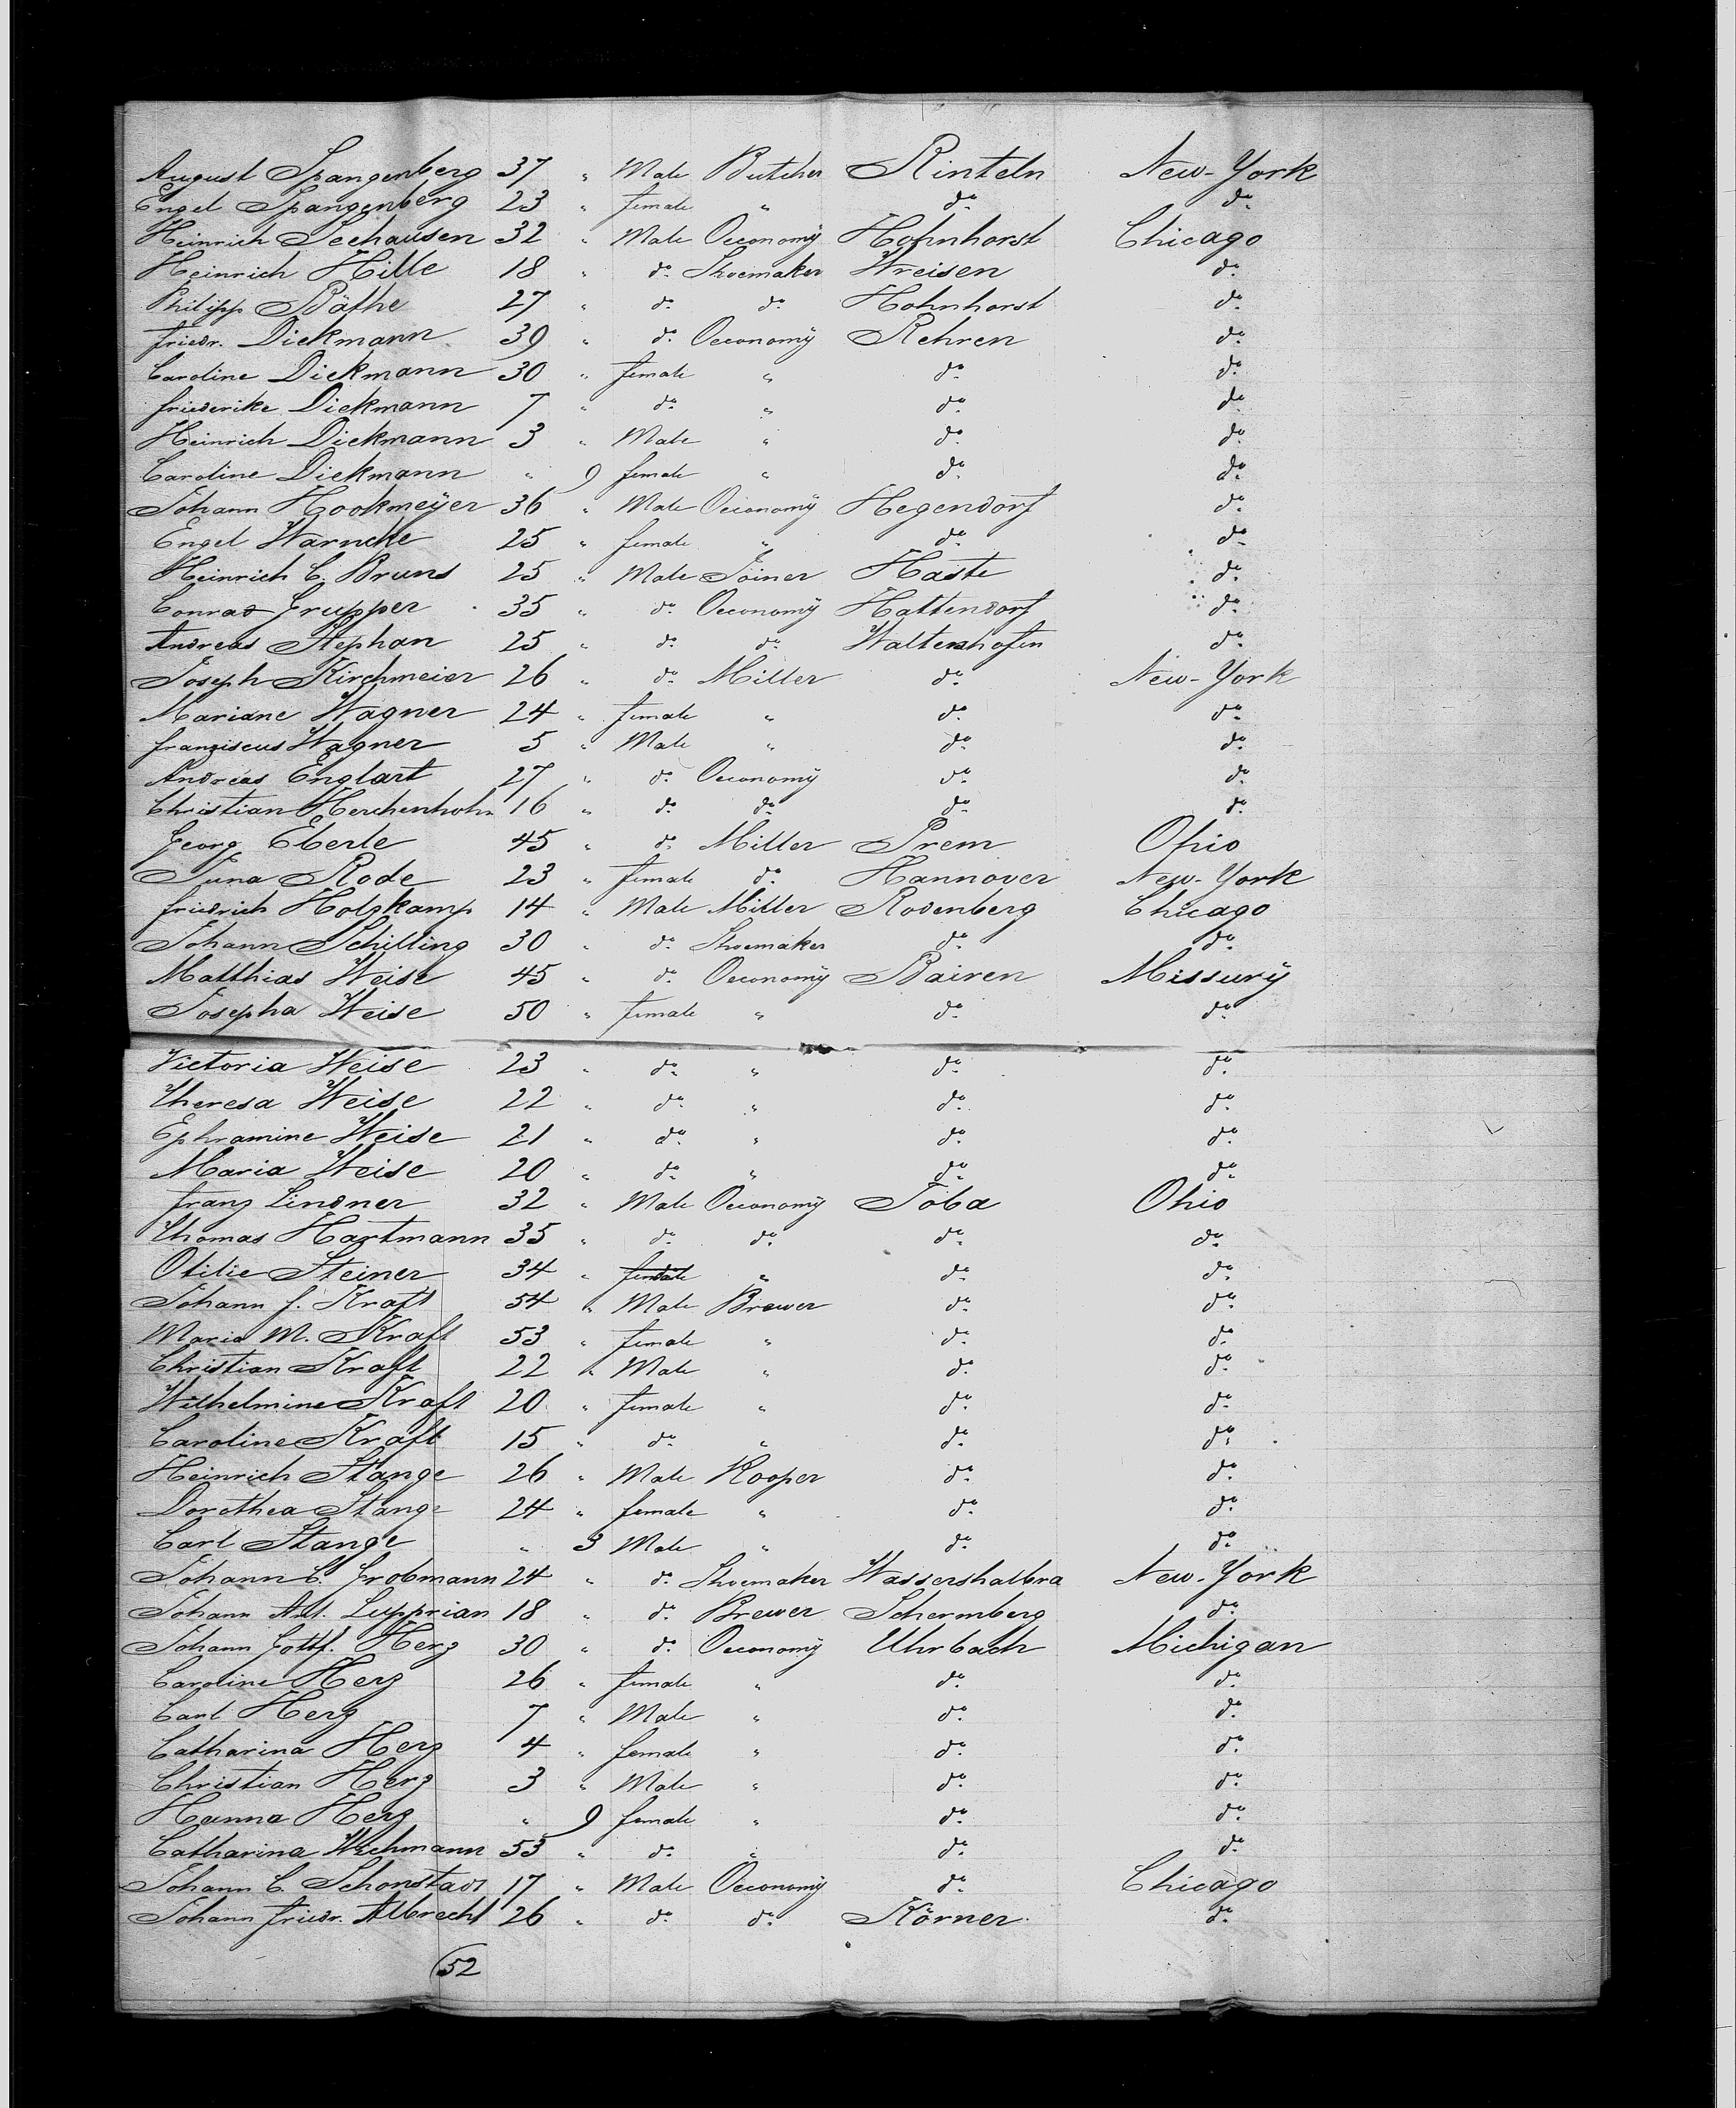 August Spangenberg 37 " Male Butcher Rinteln New-York
Engel Spangenberg 23 " female " do do
Heinrich Seehausen 32 " Male Oeconomÿ Hohnhorst Chicago
Heinrich Hille 18 " do Shoemaker Wreisen do
Philipp Bäthe 27 " do do Hohnhorst do
friedr. Diekmann 39 " do Oeconomÿ Rehren do
Caroline Diekmann 30 " female " do do
friederike Diekmann 7 " do " do do
Heinrich Diekmann 3 " Male " do do
Caroline Diekmann " 9 female " do do
Johann Hookmeÿer 36 " Male Oeconomÿ Hegendorf do
Engel Warncke 25 " female " do do
Heinrich C. Bruns 25 " Male Joiner Haste do
Conrad Grupper 35 " do Oeconomÿ Hattendorf do
Andreas Stephan 25 " do do Waltershofen do
Joseph Kirchmeier 26 " do Miller do New-York
Mariane Wagner 24 " female " do do
franziscus Wagner 5 " Male " do do
Andreas Englart 27 " do Oeconomÿ do do
Christian Herchenhohn 16 " do do do do
Georg Eberle 45 " do Miller Prem Ohio
Juna Rode 23 " female do Hannover New-York
friedrich Holzkamp 14 " Male Miller Rodenberg Chicago
Johann Schilling 30 " do Shoemaker do do
Matthias Weise 45 " do Oeconomÿ Bairen Missurÿ
Josepha Weise 50 " female " do do
Victoria Weise 23 " do " do do
Theresa Weise 22 " do " do do
Ephramine Weise 21 " do " do do
Maria Weise 20 " do " do do
franz Lindner 32 " Male Oeconomÿ Toba Ohio
Thomas Hartmann 35 " do do do do
Otilie Steiner 34 " female " do do
Johann f. Kraft 54 " Male Brewer do do
Maria M. Kraft 53 " female " do do
Christian Kraft 22 " Male " do do
Wilhelmine Kraft 20 " female " do do
Caroline Kraft 15 " do " do do
Heinrich Stange 26 " Male Kooper do do
Dorothea Stange 24 " female " do do
Carl Stange " 3 Male " do do
Johann C. Grobmann 24 " do Shoemaker Wassershalbra New-York
Johann Lupprian 18 " do Brewer Schermberg do
Johann Gottf. Herz 30 " do Oeconomÿ Uhrbach Michigan
Caroline Herz 26 " female " do do
Carl Herz 7 " Male " do do
Catharina Herz 4 " female " do do
Christian Herz 3 " Male " do do
Hanna Herz " 9 female " do do
Catharina Wichmann 53 " do " do do
Johann C. Schonstadt 17 " Male Oeconomÿ do Chicago
Johann friedr. Albrecht 26 " do do Körner do
52